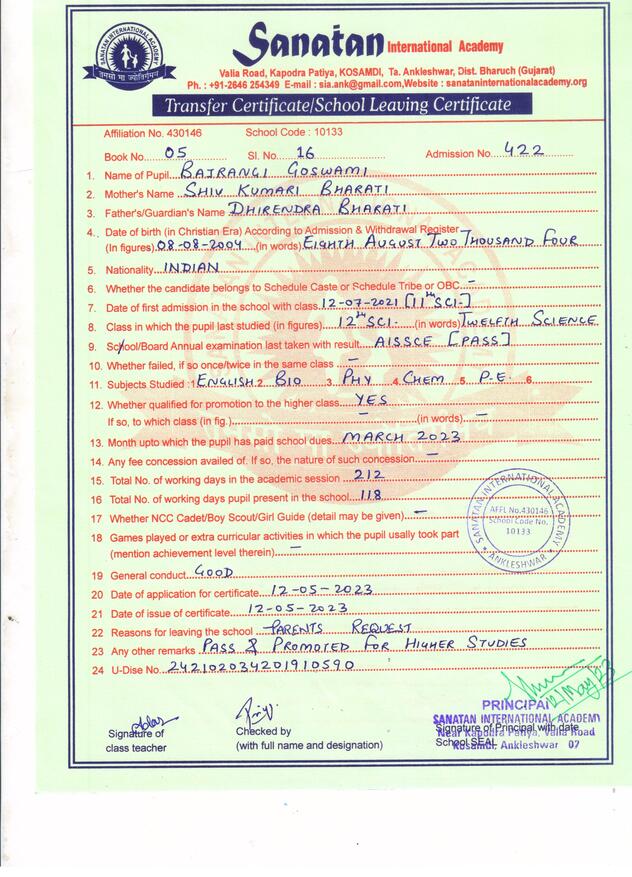 SANATAN INTERNATIONAL ACADEMY
तमसो मा ज्योतिर्गमय
Sanatan International Academy
Valia Road, Kapodra Patiya, KOSAMDI, Ta. Ankleshwar, Dist. Bharuch (Gujarat)
Ph. : +91-2646 254349 E-mail : sia.ank@gmail.com,Website : sanataninternationalacademy.org
Transfer Certificate/School Leaving Certificate
Affiliation No. 430146 School Code : 10133
Book No. 05 Sl. No. 16 Admission No. 422
1. Name of Pupil BAJRANGI GOSWAMI
2. Mother's Name SHIV KUMARI BHARATI
3. Father's/Guardian's Name DHIRENDRA BHARATI
4. Date of birth (in Christian Era) According to Admission & Withdrawal Register
(In figures) 08-08-2004 (in words) EIGHTH AUGUST TWO THOUSAND FOUR
5. Nationality INDIAN
6. Whether the candidate belongs to Schedule Caste or Schedule Tribe or OBC. -
7. Date of first admission in the school with class 12-07-2021 [11th SCI.]
8. Class in which the pupil last studied (in figures) 12th SCI. (in words) TWELFTH SCIENCE
9. School/Board Annual examination last taken with result AISSCE [PASS]
10. Whether failed, if so once/twice in the same class -
11. Subjects Studied : 1 ENGLISH 2. BIO 3. PHY 4. CHEM 5. P.E. 6.
12. Whether qualified for promotion to the higher class YES
If so, to which class (in fig.) - (in words) -
13. Month upto which the pupil has paid school dues MARCH 2023
14. Any fee concession availed of. If so, the nature of such concession -
15. Total No. of working days in the academic session 212
16 Total No. of working days pupil present in the school 118
17 Whether NCC Cadet/Boy Scout/Girl Guide (detail may be given) -
18 Games played or extra curricular activities in which the pupil usally took part
(mention achievement level therein) -
19 General conduct GOOD
20 Date of application for certificate 12-05-2023
21 Date of issue of certificate 12-05-2023
22 Reasons for leaving the school PARENTS REQUEST
23 Any other remarks PASS & PROMOTED FOR HIGHER STUDIES
24 U-Dise No. 242102034201910590
SANATAN INTERNATIONAL ACADEMY
AFFL No.430146
School Code No.
10133
ANKLESHWAR
12/May/23
PRINCIPAL
SANATAN INTERNATIONAL ACADEMY
Near Kapodra Patiya, Valia Road
Kosamdi, Ankleshwar 07
Signature of
class teacher
Checked by
(with full name and designation)
Signature of Principal with date
School SEAL